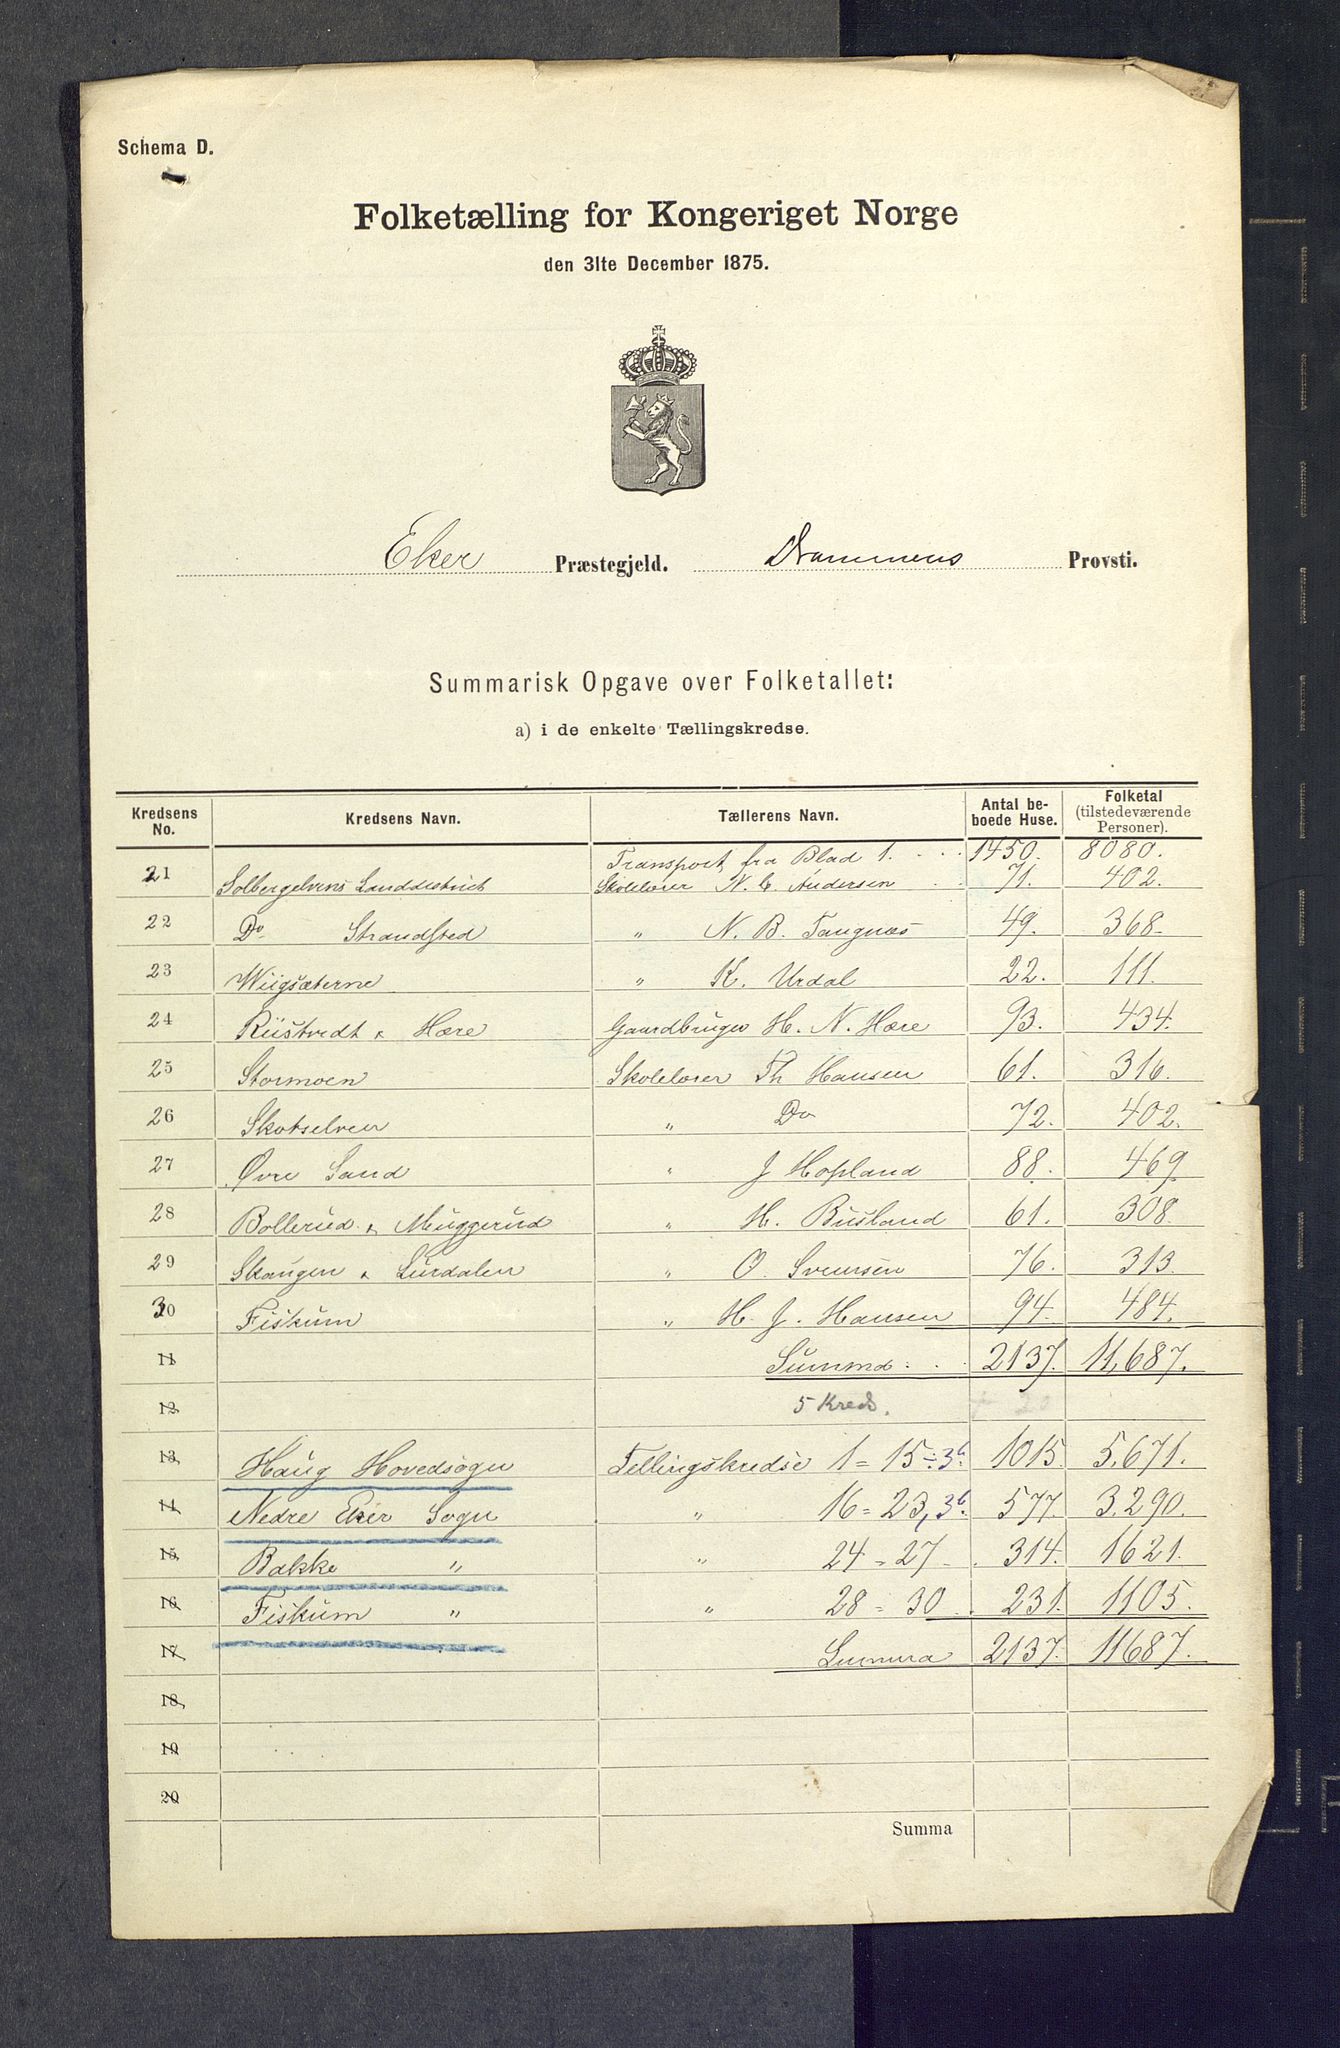 Schema D.
Folketælling for Kongeriget Norge
den 31te December 1875.
Eker Præstegjeld. Drammens Provsti.
Summarisk Opgave over Folketallet:
a) i de enkelte Tællingskredse.
Kredsens No. Kredsens Navn. Tællerens Navn. Antal beboede Huse. Folketal (tilstedeværende Personer).
Transport fra Blad 1. 1450. 8080.
21 Solbergelvens Landdistrict Skolelærer N. C. Andersen 71. 402.
22 Do Strandsted " N. B. Tangnæs 49. 368.
23 Wiigsæterne " K. Urdal 22. 111.
24 Küstvedt & Hære Gaardbruger H. N. Hære 93. 434.
25 Stormoen Skolelærer Th Hansen 61. 316.
26 Skotselven " Do 72. 402.
27 Øvre Sand " J Hopland 88. 469.
28 Bollerud & Muggerud " H. Busland 61. 308.
29 Skougen & Lurdalen " O. Svensen 76. 313.
30 Fiskum " H. J. Hansen 94. 484.
11 Summa 2137. 11,687.
12 5 Kreds.
13 Haug Hovedsogn Tellingskredse 1 = 15 ÷ 3b. 1015 5,671.
14 Nedre Eker Sogn " 16 = 23, 3b. 577. 3,290.
15 Bakke " " 24 = 27 314. 1621.
16 Fiskum " " 28 = 30 231. 1105.
17 Summa 2137. 11687.
18
19
20
Summa